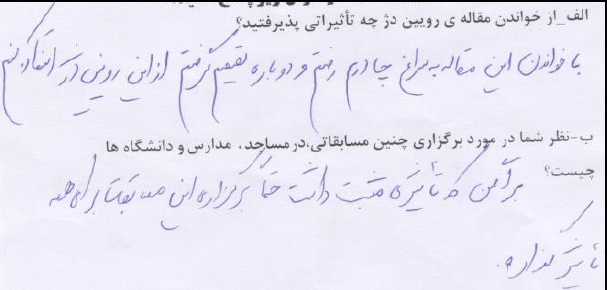 الف_از خواندن مقاله ی رویین دژ چه تأثیراتی پذیرفتید؟
با خواندن این مقاله به سراغ چادرم رفتم و دوباره تصمیم گرفتم از این رویین دژ استفاده کنم
ب-نظر شما در مورد برگزاری چنین مسابقاتی،در مساجد، مدارس و دانشگاه ها
چیست؟ برا من که تأثیری مثبت داشت حتماً برگزاری این مسابقات برای همه
تأثیر گذاره.